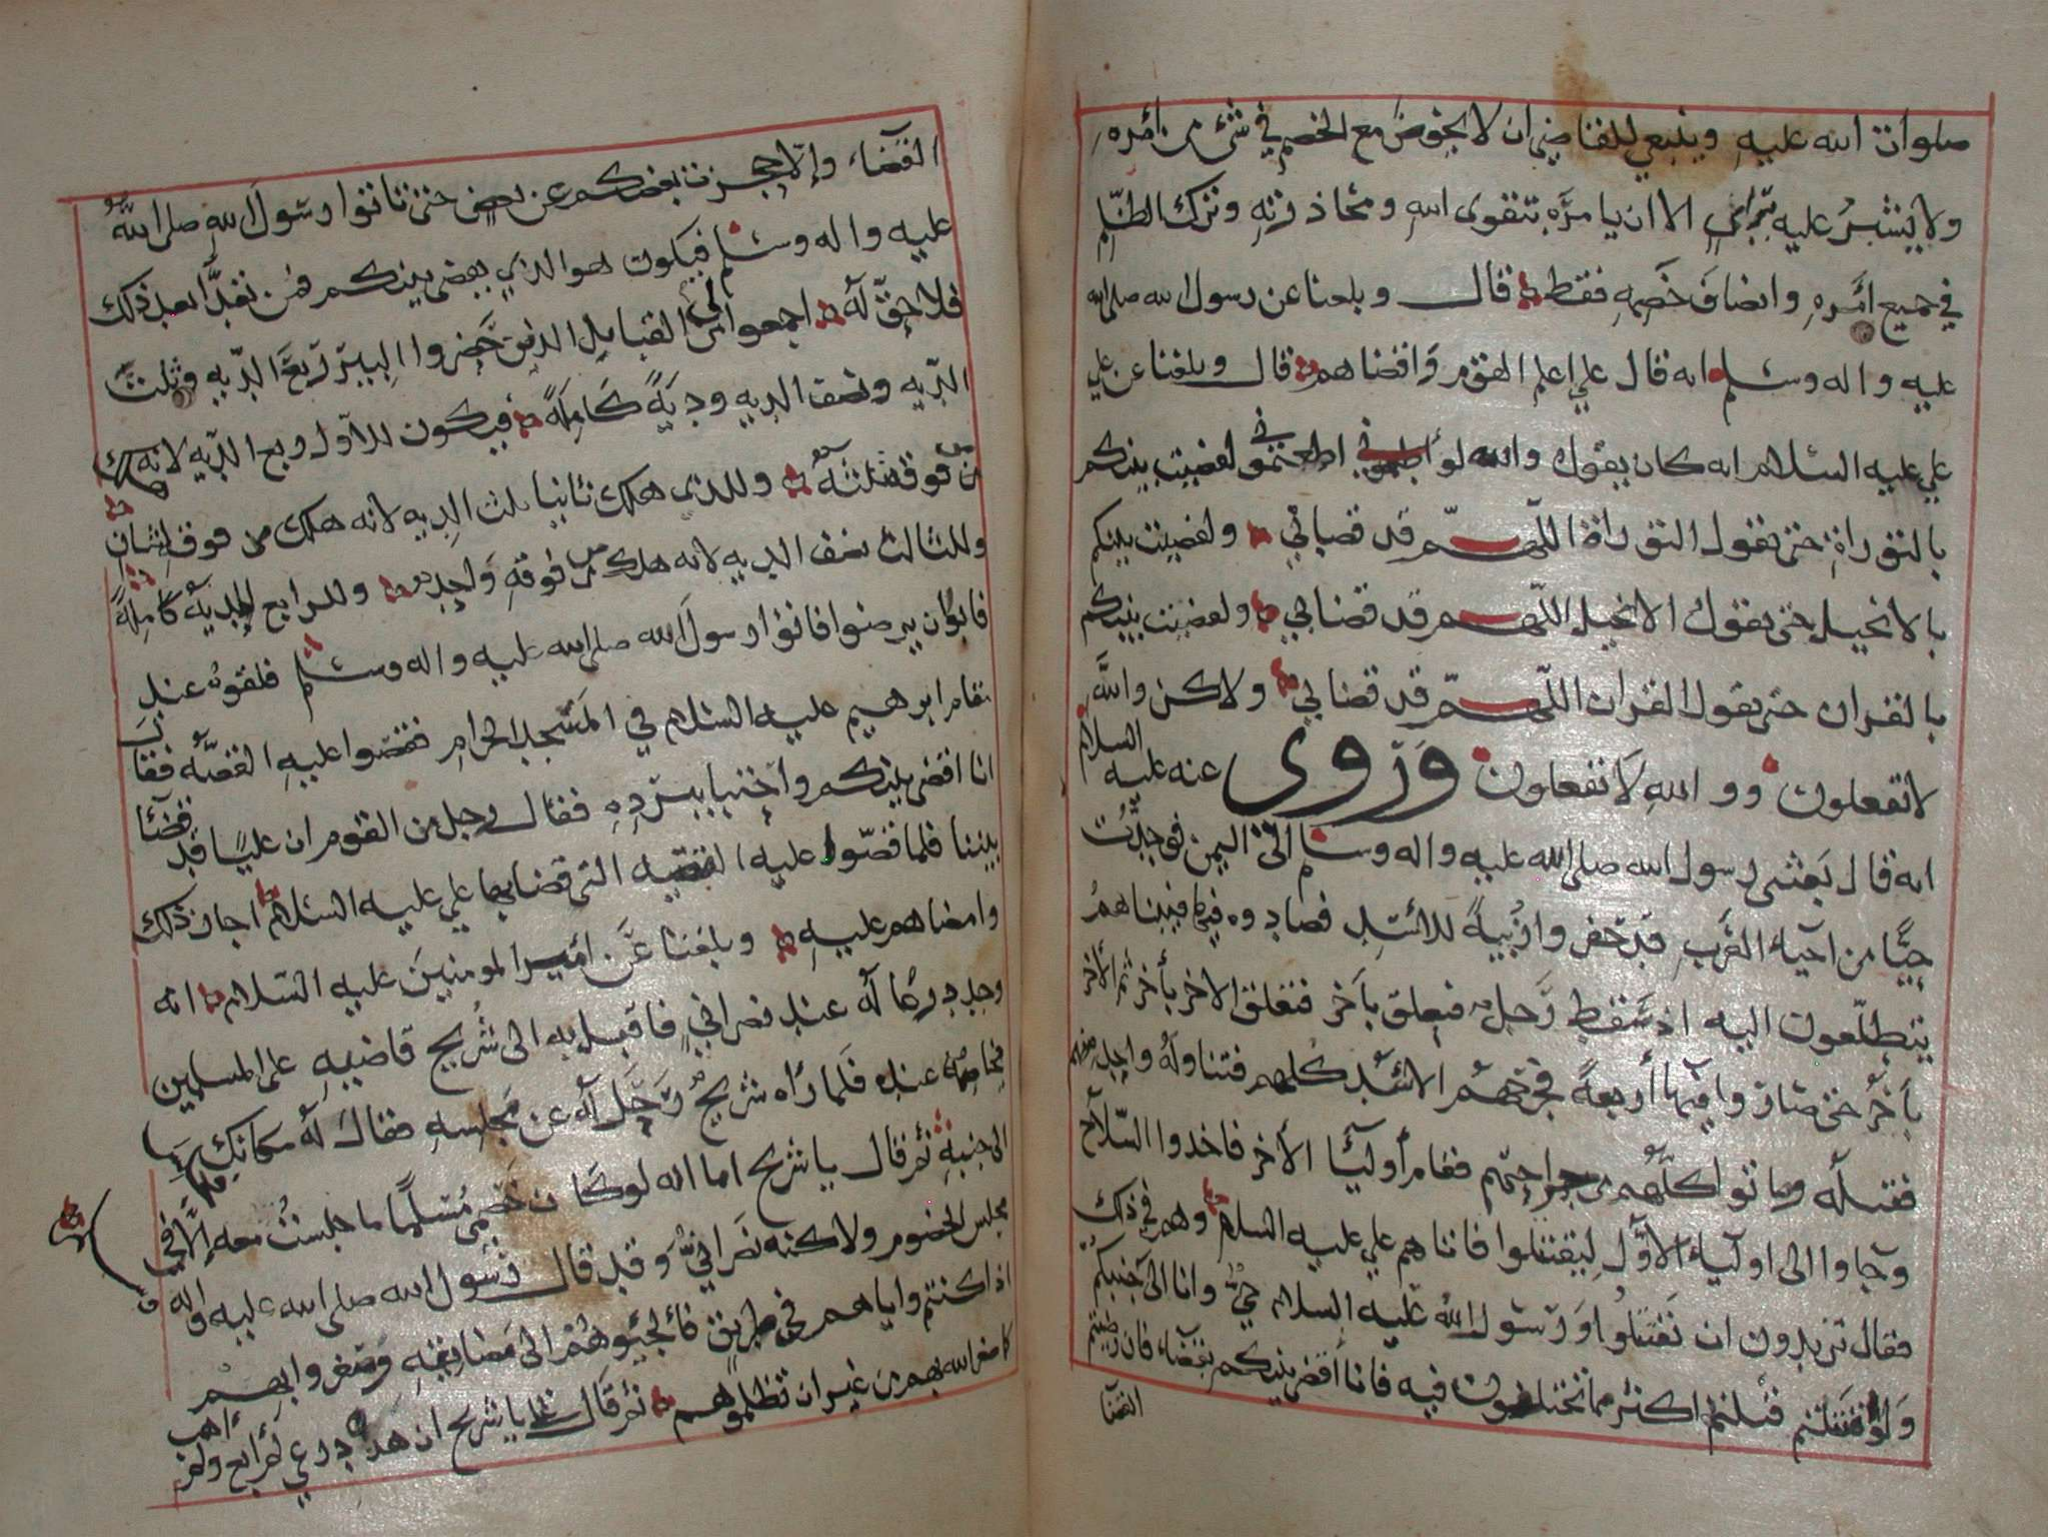 صلوات الله عليه وينبغي للقاضي ان لا يخوض مع الخصم في شئ من أمره
ولا يشير عليه براي الا ان يامره بتقوى الله ومحاذرته وترك الظلم
في جميع امره وانصاف خصمه فقط قال وبلغنا عن رسول الله صلى الله
عليه واله وسلم انه قال علي اعلم القوم واقضاهم قال وبلغنا عن علي
علي عليه السلام انه كان يقول والله لو اطعتموني لقضيت بينكم
بالتوراة حتى تقول التوراة اللهم قد قضا بي ولقضيت بينكم
بالانجيل حتى يقول الانجيل اللهم قد قضا بي ولقضيت بينكم
بالقران حتى يقول القران اللهم قد قضا بي ولاكن والله
لا تفعلون ووالله لا تفعلون وروى عنه عليه السلام
انه قال بعثني رسول الله صلى الله عليه واله وسلم الى اليمن فوجدت
حيا من احياء العرب قد حفروا زبية للاسد فصادوه فيها فبيناهم
يتطلعون اليه اذ سقط رجل فتعلق بآخر فتعلق الاخر بآخر ثم الاخر
بآخر حتى صاروا فيها أربعة فجرحهم الاسد كلهم فتناوله واحد منهم
فقتله وماتوا كلهم من جراحتهم فقام أولياء الأخر فاخذوا السلاح
وجاوا الى اولياء الاول ليقتتلوا فاتاهم علي عليه السلام وهم في ذلك
فقال تريدون ان تقتتلوا ورسول الله عليه السلام حي وانا الى جنبكم
ولو اقتتلتم قتلتم اكثر مما تختلفون فيه فانا أقضي بينكم بقضاء فان رضيتم
القضا
القضاء والا حجزت بعضكم عن بعض حتى تاتوا رسول الله صلى الله
عليه واله وسلم فيكون هو الذي يقضي بينكم فمن تعدا بعد ذلك
فلا حق له اجمعوا لي من القبايل الذين حضروا البير ربع الديه وثلث
الديه ونصف الديه ودية كاملة فيكون للاول ربع الديه لانه هلك
من فوقه ثلثة وللذي هلك ثانيا ثلث الديه لانه هلك من فوقه اثنان
وللثالث نصف الديه لانه هلك من فوقه واحد وللرابع الدية كاملة
فابوا ان يرضوا فاتوا رسول الله صلى الله عليه واله وسلم فلقوه عند
مقام ابرهيم عليه السلام في المسجد الحرام فقصوا عليه القصه فقال
انا اقضي بينكم واحتبا ببرده فقال رجل من القوم ان عليا قد قضا
بيننا فلما قصوا عليه القصه التي قضا بها علي عليه السلام اجاز ذلك
وامضاهم عليه وبلغنا عن امير المومنين عليه السلام انه
وجد درعا له عند نصراني فاقبل به الى شريح قاضيه على المسلمين
يخاصمه عنده فلما رأه شريح رحل له عن مجلسه فقال له مكانك فجلس
الى جنبه ثم قال يا شريح اما انه لو كان خصمي مسلما ما جلست معه إلا في
مجلس الخصوم ولاكنه نصراني وقد قال رسول الله صلى الله عليه واله
اذا كنتم واياهم في طريق فألجيوهم الى مضايقه وصغروا بهم
كما صغر الله بهم من غير ان تظلموهم ثم قال علي يا شريح ان هذه درعي لم أبع ولم أهب